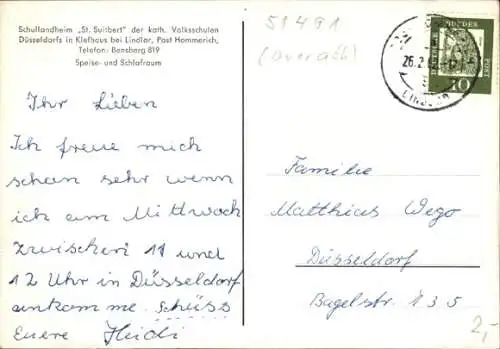 Schullandheim „St. Suitbert" der kath. Volksschulen
Düsseldorfs in Klefhaus bei Lindlar, Post Hommerich,
Telefon: Bensberg 819
Speise- und Schlafraum
Ihr Lieben
Ich freue mich
schon sehr wenn
ich am Mittwoch
zwischen 11 und
12 Uhr in Düsseldorf
ankomme. Schüss
Euere Heidi
51491
(Overath)
26.2.
10
Familie
Matthias Wego
Düsseldorf
Bugelstr. 135
2,-